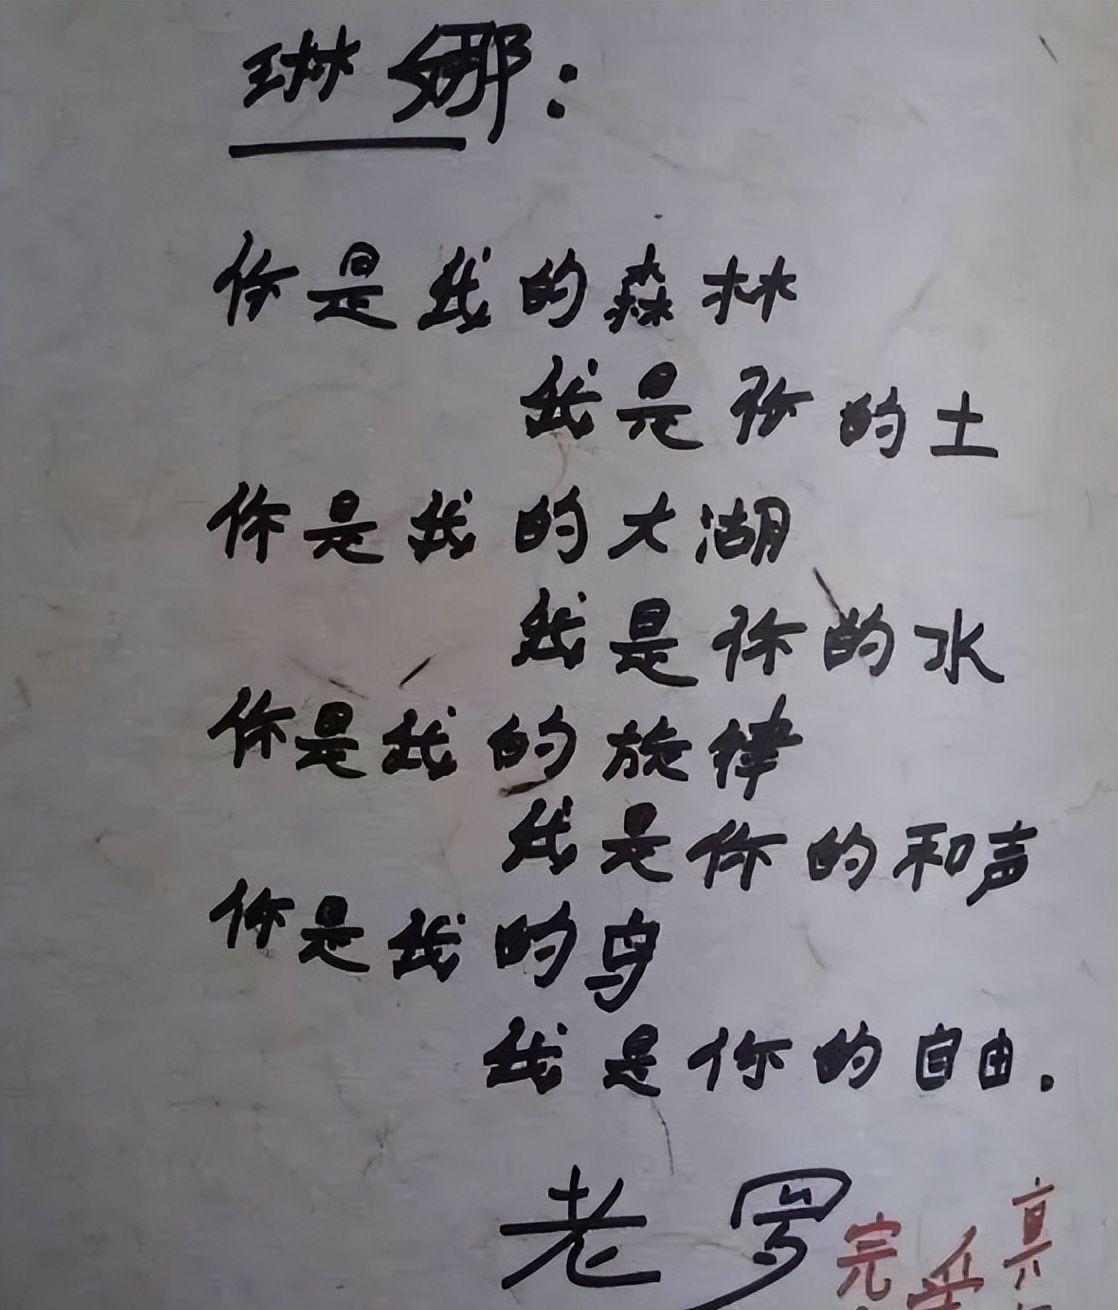 琳娜：
你是我的森林
我是你的土
你是我的大湖
我是你的水
你是我的旋律
我是你的和声
你是我的鸟
我是你的自由.
老罗
完